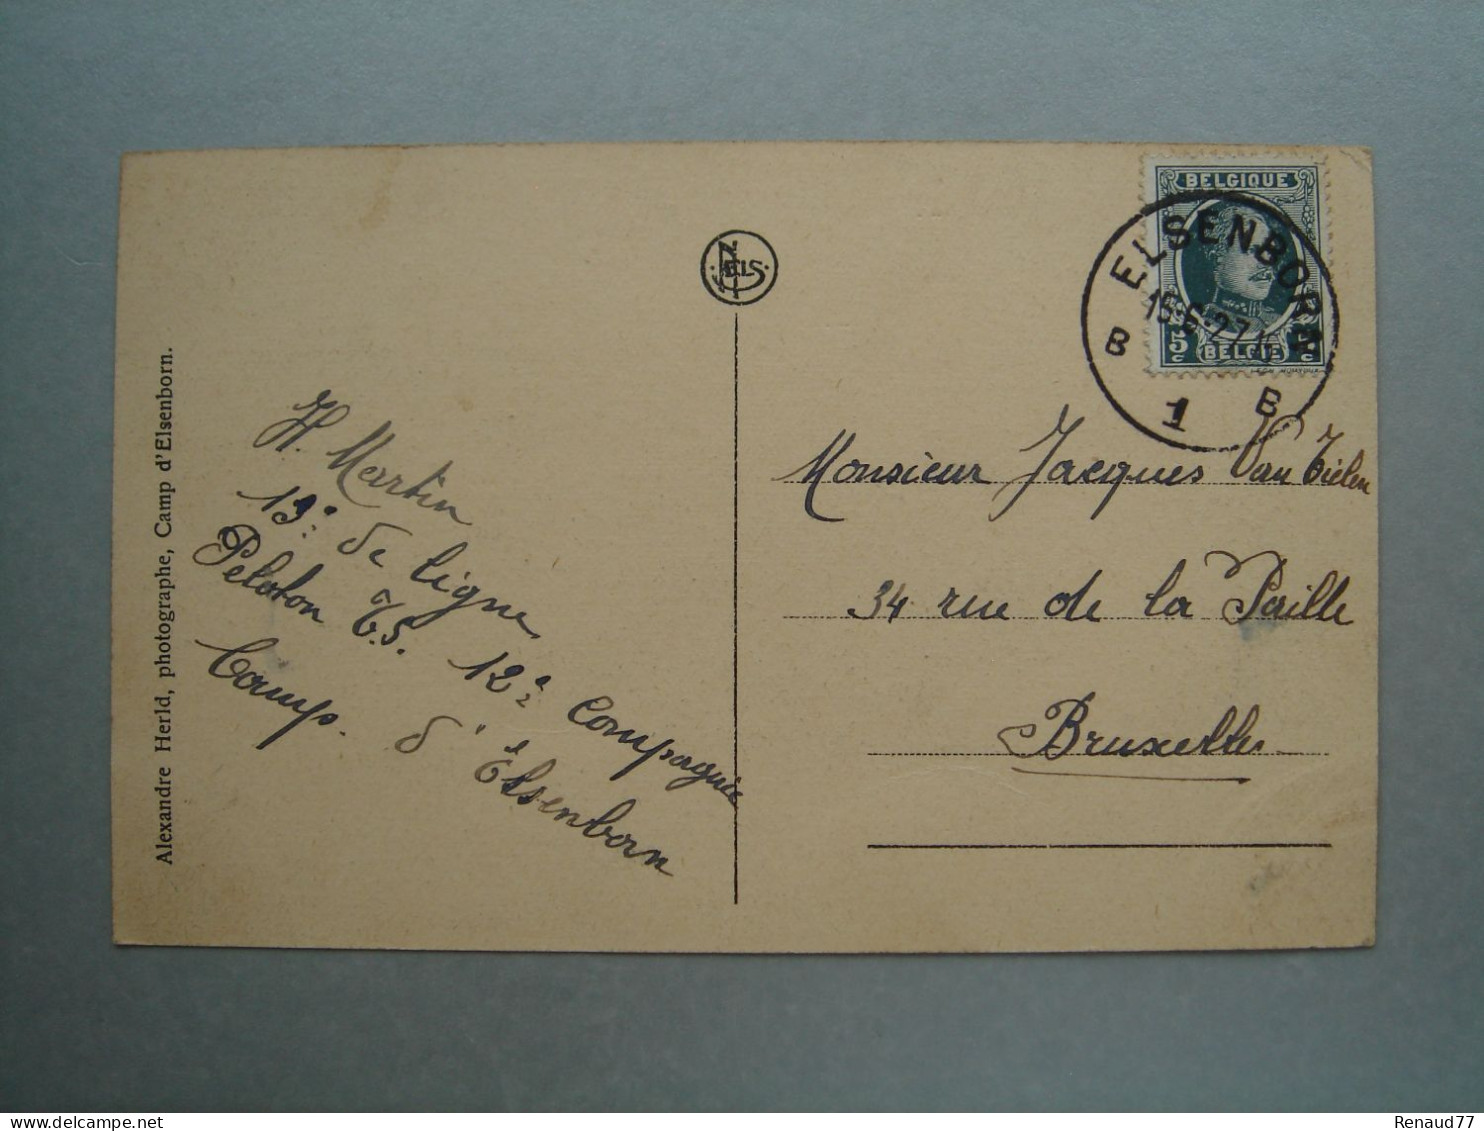 Alexandre Herld, photographe, Camp d'Elsenborn.
H. Martin
13e de ligne
Peloton T.S. 12e Compagnie
Camp. d'Elsenborn
NELS
BELGIQUE
5c BELGIE c
ELSENBORN
15-6-27
B 1 B
Monsieur Jacques Van Tielen
34 rue de la Paille
Bruxelles
delcampe.net
Renaud77